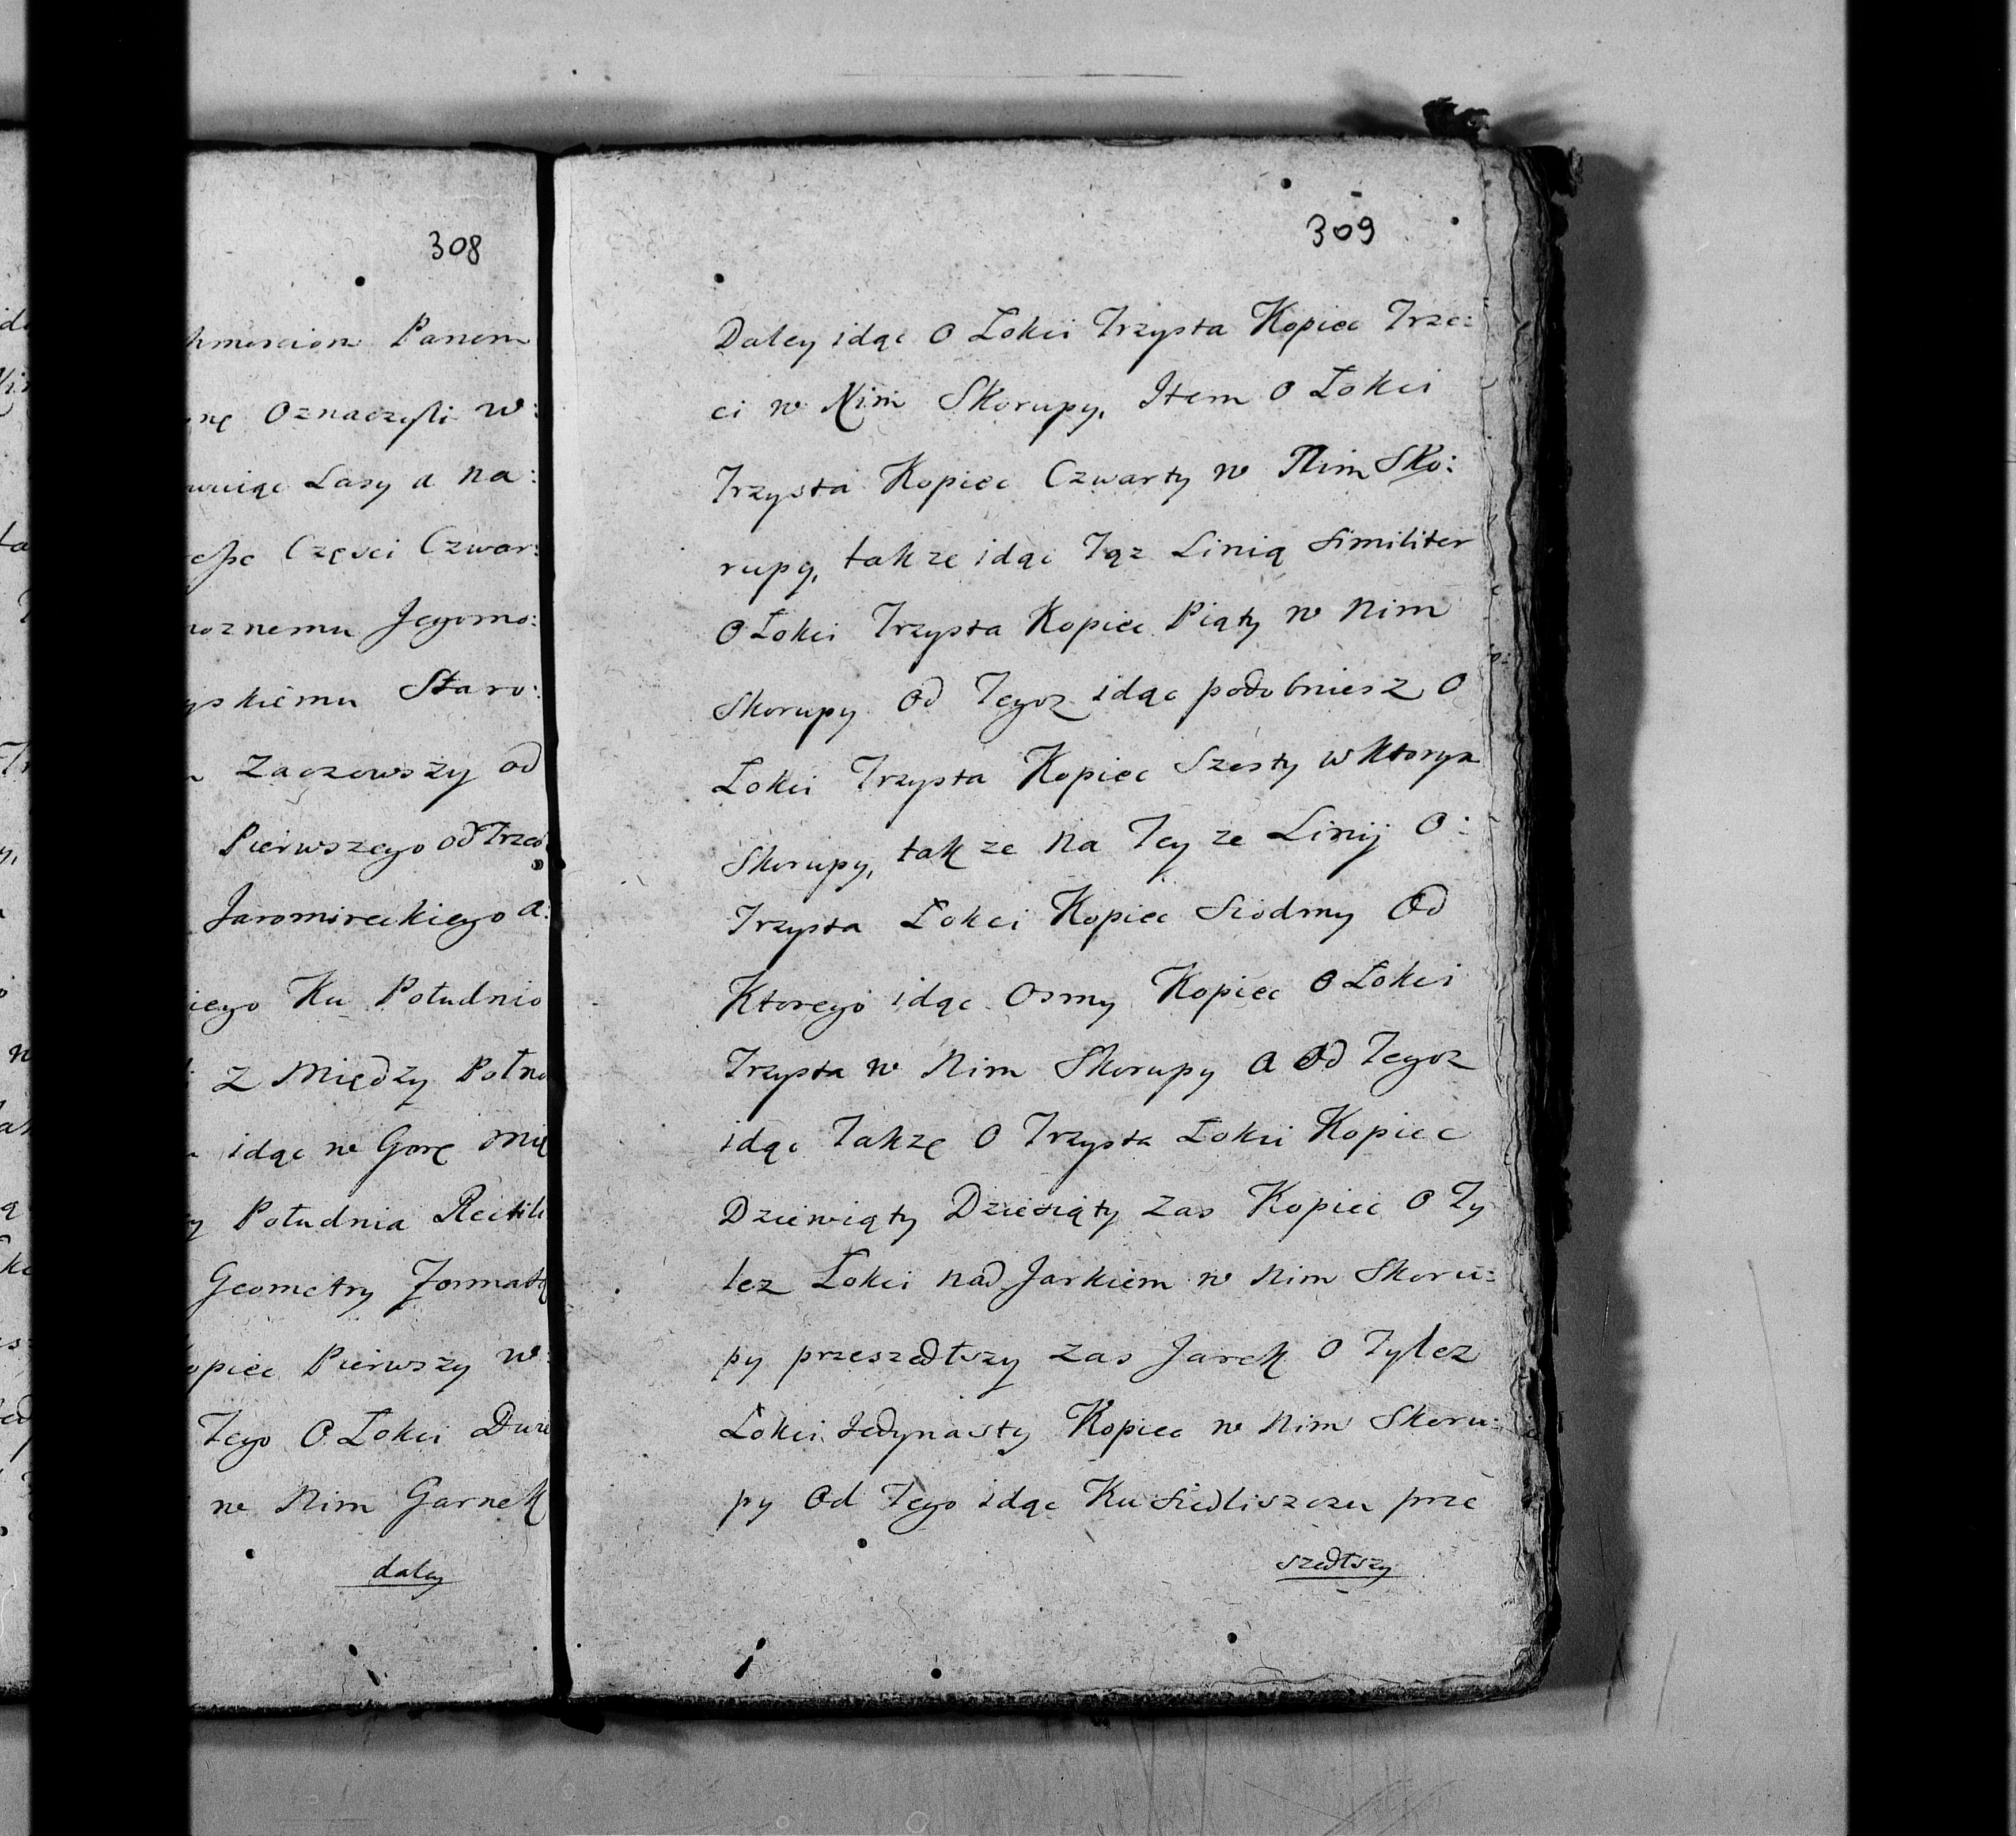 308
Panem
Oznaczyli w:
Lasy a na:
Częsci Czwar:
Jegomo:
Staro:
Zaczowszy od
Pierwszego od Trzeci
Jaromireckiego a:
Ku Południo
Z Między Połno
idąc w Gorę Mię
Południa Rectili
Geometry Formatą
Pierwszy w:
Tego O Łokci Dwie
w Nim Garnek
daley
309
Daley idąc O Łokci Trzysta Kopiec Trze:
ci w Nim Skorupy, Item O Łokci
Trzysta Kopiec Czwarty w Nim Sko:
rupy, takze idąc Tąz Linią Similiter
O Łokci Trzysta Kopiec Piąty w Nim
Skorupy Od Tegoz idąc podobniesz O
Łokci Trzysta Kopiec Szosty w Ktorym
Skorupy, tak ze Na Tey ze Linij O:
Trzysta Łokci Kopiec Siodmy Od
Ktorego idąc Osmy Kopiec O Łokci
Trzysta w Nim Skorupy a Od Tegoz
idąc Takze O Trzysta Łokci Kopiec
Dziewiąty Dziesiąty Zas Kopiec O Ty
lez Łokci nad Jarkiem w Nim Skoru:
py przeszedłszy Zas Jarek O Tylez
Łokci Jedynasty Kopiec w Nim Skoru:
py Od Tego idąc Ku Siedliszczu prze
szedłszy